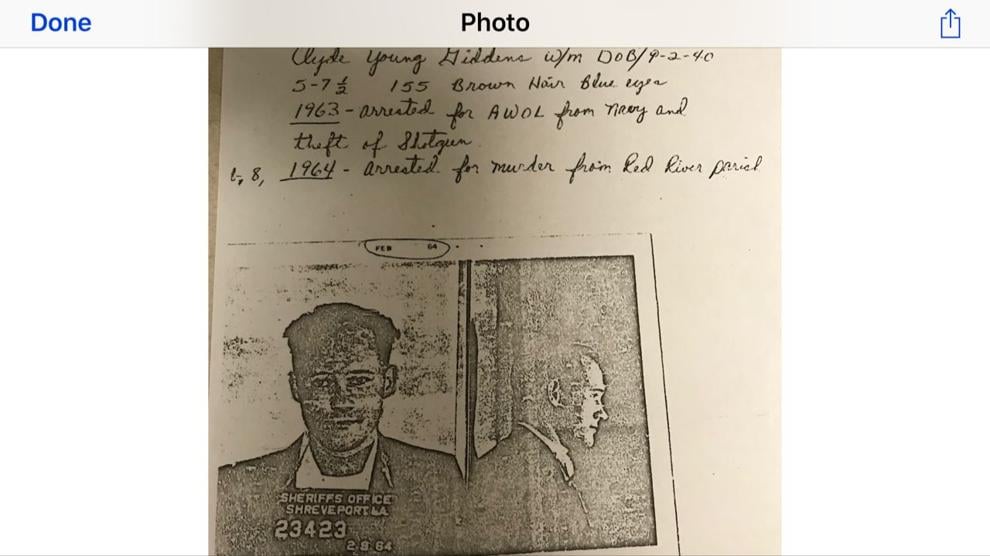 Done
Photo
Clyde Young Giddens W/m DOB/9-2-40
5-7½ 155 Brown Hair Blue eyes
1963 - arrested for AWOL from Navy and
theft of Shotgun
1964 - arrested for murder from Red River parish
FEB 64
SHERIFFS OFFICE
SHREVEPORT LA.
23423
2 8 64